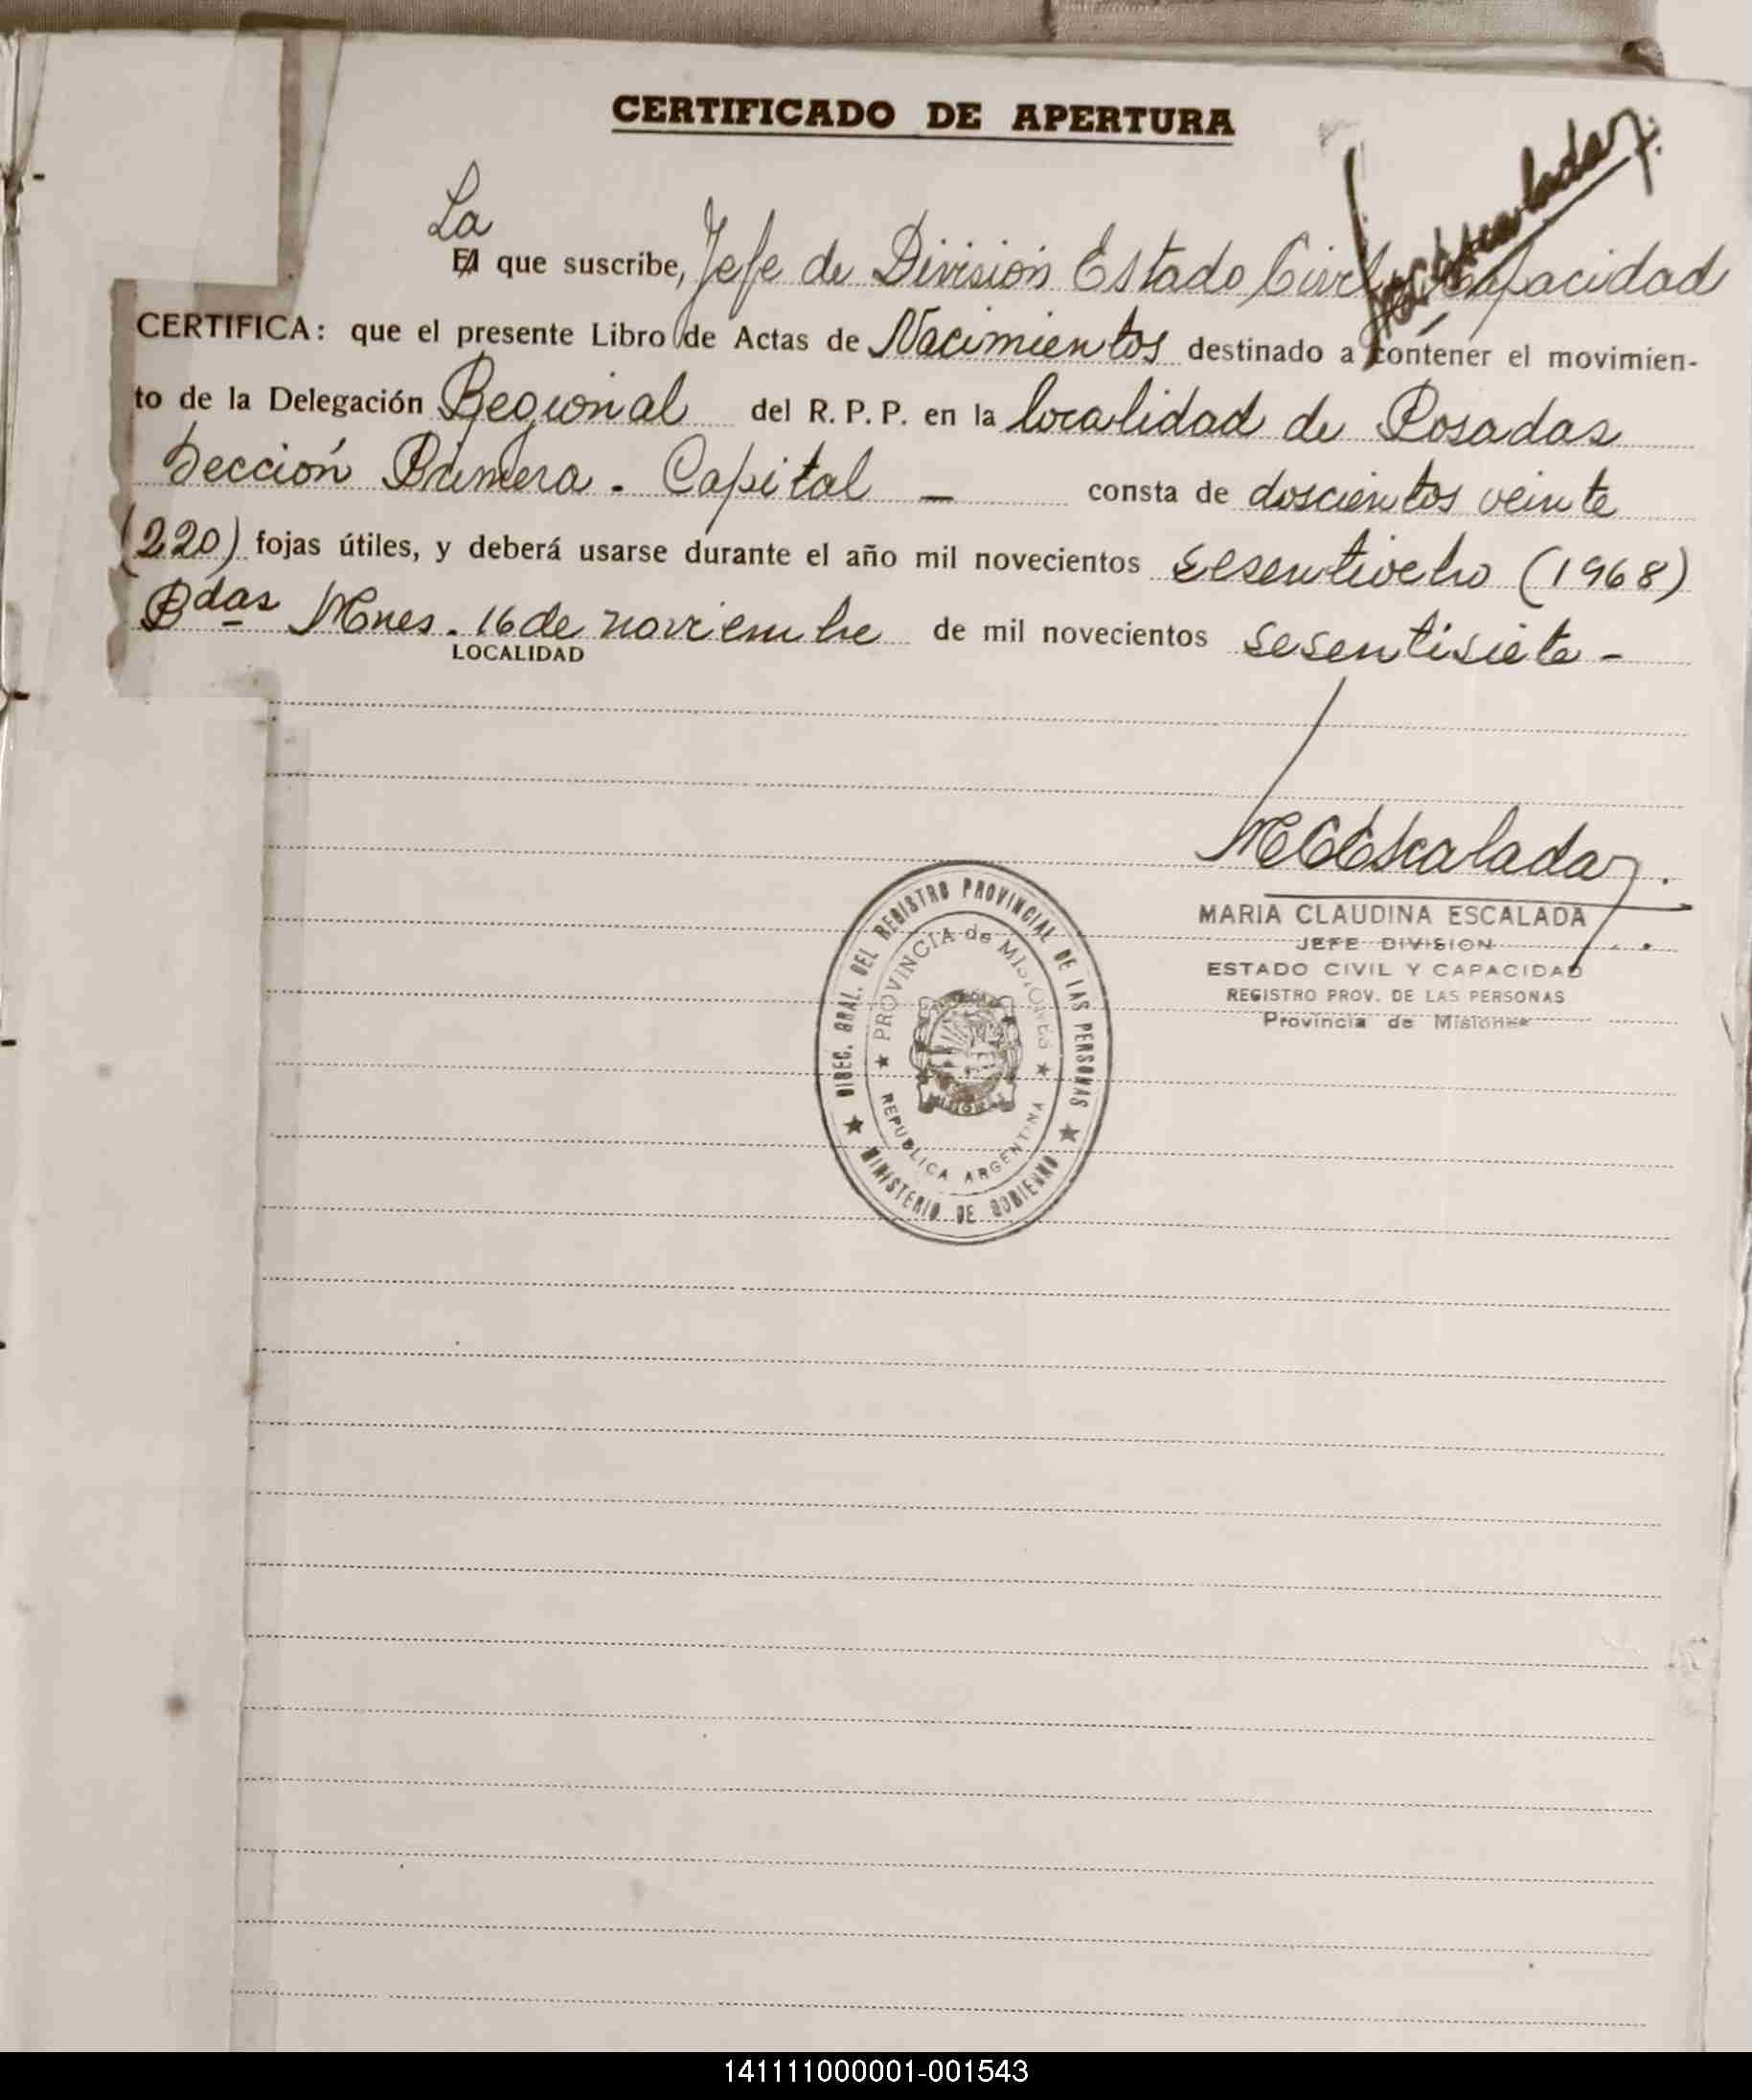 CERTIFICADO DE APERTURA
La
El que suscribe, Jefe de División Estado Civil y Capacidad
CERTIFICA: que el presente Libro de Actas de Nacimientos destinado a contener el movimien-
to de la Delegación Regional del R. P. P. en la localidad de Posadas
Sección Primera. Capital - consta de doscientos veinte
(220) fojas útiles, y deberá usarse durante el año mil novecientos sesentiocho (1968)
Pdas Mnes. 16 de noviembre de mil novecientos sesentisiete -
LOCALIDAD
MCEscalada
MARIA CLAUDINA ESCALADA
JEFE DIVISION
ESTADO CIVIL Y CAPACIDAD
REGISTRO PROV. DE LAS PERSONAS
Provincia de Misiones
DIREC. GRAL. DEL REGISTRO PROVINCIAL DE LAS PERSONAS
PROVINCIA de MISIONES
REPUBLICA ARGENTINA
MINISTERIO DE GOBIERNO
141111000001-001543